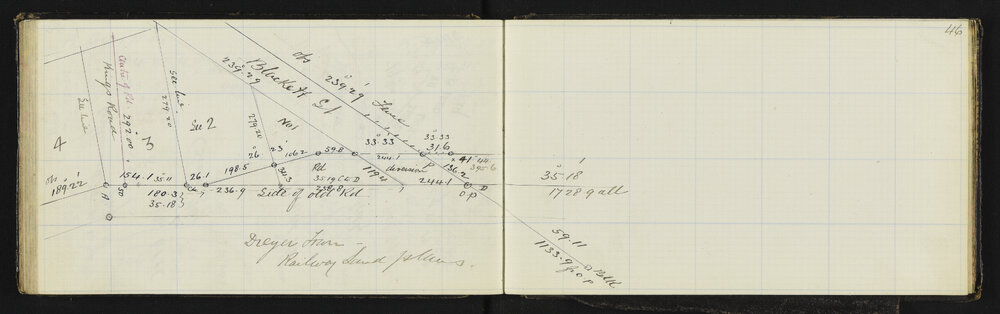 46
Centre of Rd
292°00'
Kings Road
See
279.20
See 2
No 1
279.20
4
3
Blackett St
239°29
obs
239°29'
Fence
33°33
31.6
33°33
244.1
diversion
59.8
106.2
26°
23'
198.5
34.3
Rd
35°19 C & D
119.4
136.2
44
395.6
244.1
obs
189°22'
154.1
35°11
180.3
35.18
26.1
236.9
Side of old Rd
A
B
P
D
O P
35°18'
1728.9 all
59.11
1133.9
Dreyer From
Railway Land plans.